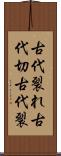 古代裂れ古
代切古代裂